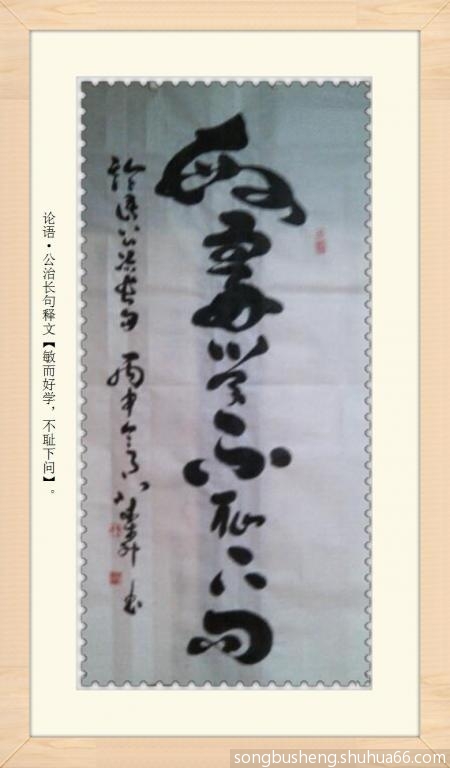 敏而好学不耻下问
论语公冶长句 丙申
论语·公治长句释文【敏而好学，不耻下问】。
songbusheng.shuhua66.com